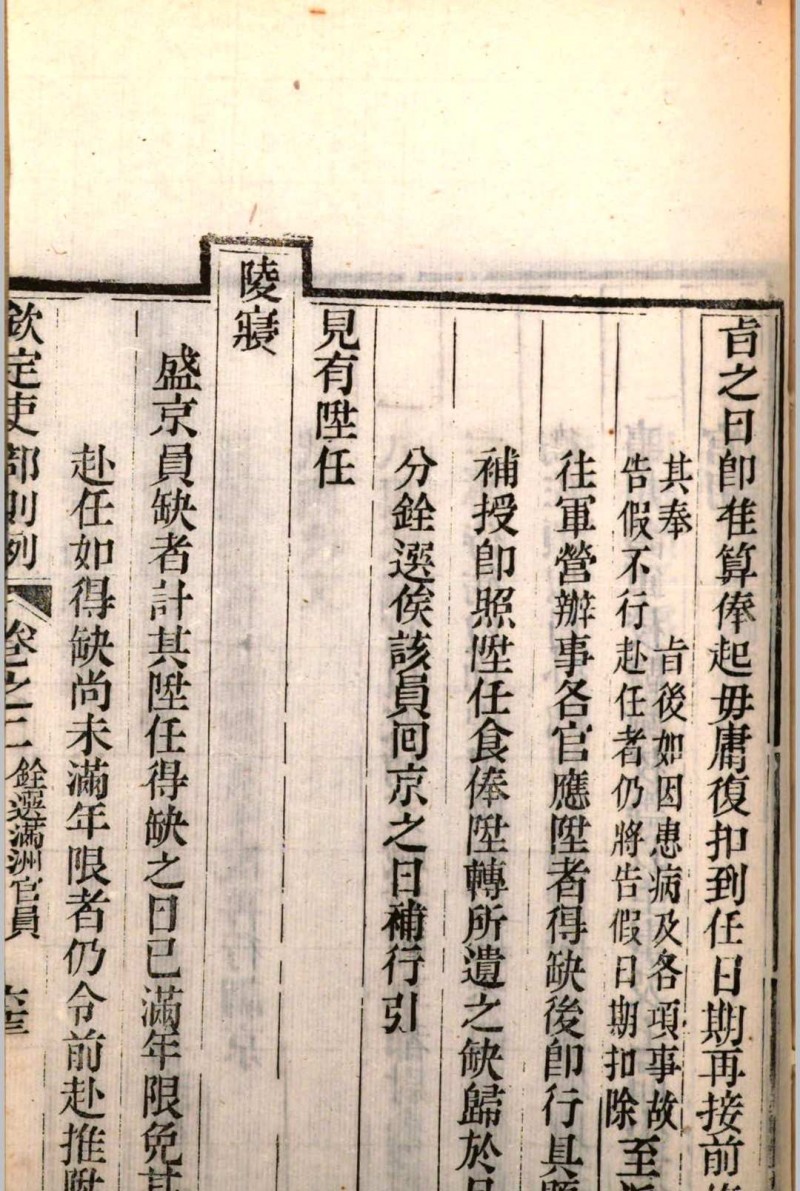 旨之日卽准算俸起毋庸復扣到任日期再接前
其奉　旨後如因患病及各項事故
告假不行赴任者仍將告假日期扣除至
往軍營辦事各官應陞者得缺後卽行具
補授卽照陞任食俸陞轉所遺之缺歸於
分銓選俟該員回京之日補行引
見有陞任
陵寢
盛京員缺者計其陞任得缺之日已滿年限免其
赴任如得缺尚未滿年限者仍令前赴推陞
欽定吏部則例　卷之二　銓選滿洲官員